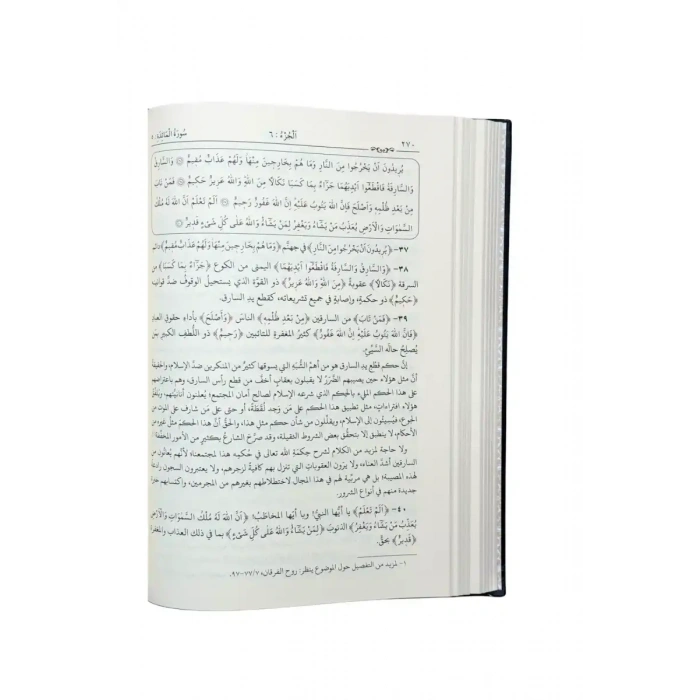 ٢٧٠ اَلْجُزْءُ : ٦ سُورَةُ الْمَائِدَة : ٥
يُرِيدُونَ أَنْ يَخْرُجُوا مِنَ النَّارِ وَمَا هُمْ بِخَارِجِينَ مِنْهَا وَلَهُمْ عَذَابٌ مُقِيمٌ ۞ وَالسَّارِقُ
وَالسَّارِقَةُ فَاقْطَعُوا أَيْدِيَهُمَا جَزَاءً بِمَا كَسَبَا نَكَالًا مِنَ اللهِ وَاللهُ عَزِيزٌ حَكِيمٌ ۞ فَمَنْ تَابَ
مِنْ بَعْدِ ظُلْمِهِ وَأَصْلَحَ فَإِنَّ اللهَ يَتُوبُ عَلَيْهِ إِنَّ اللهَ غَفُورٌ رَحِيمٌ ۞ أَلَمْ تَعْلَمْ أَنَّ اللهَ لَهُ مُلْكُ
السَّمٰوَاتِ وَالْأَرْضِ يُعَذِّبُ مَنْ يَشَاءُ وَيَغْفِرُ لِمَنْ يَشَاءُ وَاللهُ عَلَى كُلِّ شَيْءٍ قَدِيرٌ ۞
٣٧- ﴿يُرِيدُونَ أَنْ يَخْرُجُوا مِنَ النَّارِ﴾ في جهنم ﴿وَمَا هُمْ بِخَارِجِينَ مِنْهَا وَلَهُمْ عَذَابٌ مُقِيمٌ﴾
٣٨- ﴿وَالسَّارِقُ وَالسَّارِقَةُ فَاقْطَعُوا أَيْدِيَهُمَا﴾ اليمنى من الكوع ﴿جَزَاءً بِمَا كَسَبَا﴾ من
السرقة ﴿نَكَالًا﴾ عقوبةً ﴿مِنَ اللهِ وَاللهُ عَزِيزٌ﴾ ذو القوَّة الذي يستحيل الوقوف ضدَّ قوانينه
﴿حَكِيمٌ﴾ ذو حكمةٍ، وإصابةٍ في جميع تشريعاته، كقطع يد السارق.
٣٩- ﴿فَمَنْ تَابَ﴾ من السارقين ﴿مِنْ بَعْدِ ظُلْمِهِ﴾ الناسَ ﴿وَأَصْلَحَ﴾ بأداء حقوق العباد
﴿فَإِنَّ اللهَ يَتُوبُ عَلَيْهِ إِنَّ اللهَ غَفُورٌ﴾ كثيرُ المغفرة للتائبين ﴿رَحِيمٌ﴾ ذو اللُّطف الكبير بمَن
يُصلِحُ حالَه السَّيِّئ.
إنَّ حكم قطع يدِ السارق هو من أهمِّ الشُّبَه التي يسوقها كثيرٌ من المنكرين ضدَّ الإسلام، والحقيقة
أنَّ مثل هؤلاء حين يصيبهم الضَّررُ لا يقبلون بعقابٍ أخفَّ من قطع رأس السارق، وهم باعتراضهم
على هذا الحكم المليء بالحِكَم الذي شرعه الإسلام لصالح أمان المجتمع؛ يعلنون أنانيَّتهم، ويتَّقون
هؤلاء افتراءاتٍ، مثل تطبيق هذا الحكم على مَن وَجد لُقطةً، أو حتى على مَن شارف على الموت من
الجوع، فيُسيئون إلى الإسلام، ويقلِّلون من شأن حكمٍ مثل هذا، والحقُّ أنَّ هذا الحكمَ مثلُ غيره من
الأحكام، لا ينطبق إلا بتحقُّق بعض الشروط الثقيلة، وقد صرَّح الشارعُ بكثيرٍ من الأمور المخفِّفة
ولا حاجة لمزيد من الكلام لشرح حِكمَةِ الله تعالى في حُكمِه هذا لمجتمعنا؛ لأنهم يُعانون من
السارقين أشدَّ العناء، ولا يرَون العقوباتِ التي تنزل بهم كافيةً لزجرهم، ولا يعتبرون السجون رادعة
لهذه المصيبة؛ بل هي مربِّية لهم في هذا المجال لاختلاطهم بغيرهم من المجرمين، واكتسابِ
جديدة منهم في أنواع الشرور.
٤٠- ﴿أَلَمْ تَعْلَمْ﴾ يا أيُّها النبيُّ! ويا أيُّها المخاطَبُ! ﴿أَنَّ اللهَ لَهُ مُلْكُ السَّمٰوَاتِ وَالْأَرْضِ
يُعَذِّبُ مَنْ يَشَاءُ وَيَغْفِرُ﴾ الذنوبَ ﴿لِمَنْ يَشَاءُ وَاللهُ عَلَى كُلِّ شَيْءٍ﴾ بما في ذلك العذاب والمغفرة
﴿قَدِيرٌ﴾ بحقٍّ.
١- لمزيد من التفصيل حول الموضوع ينظر: روح الفرقان، ٧/ ٧٧-٩٧.